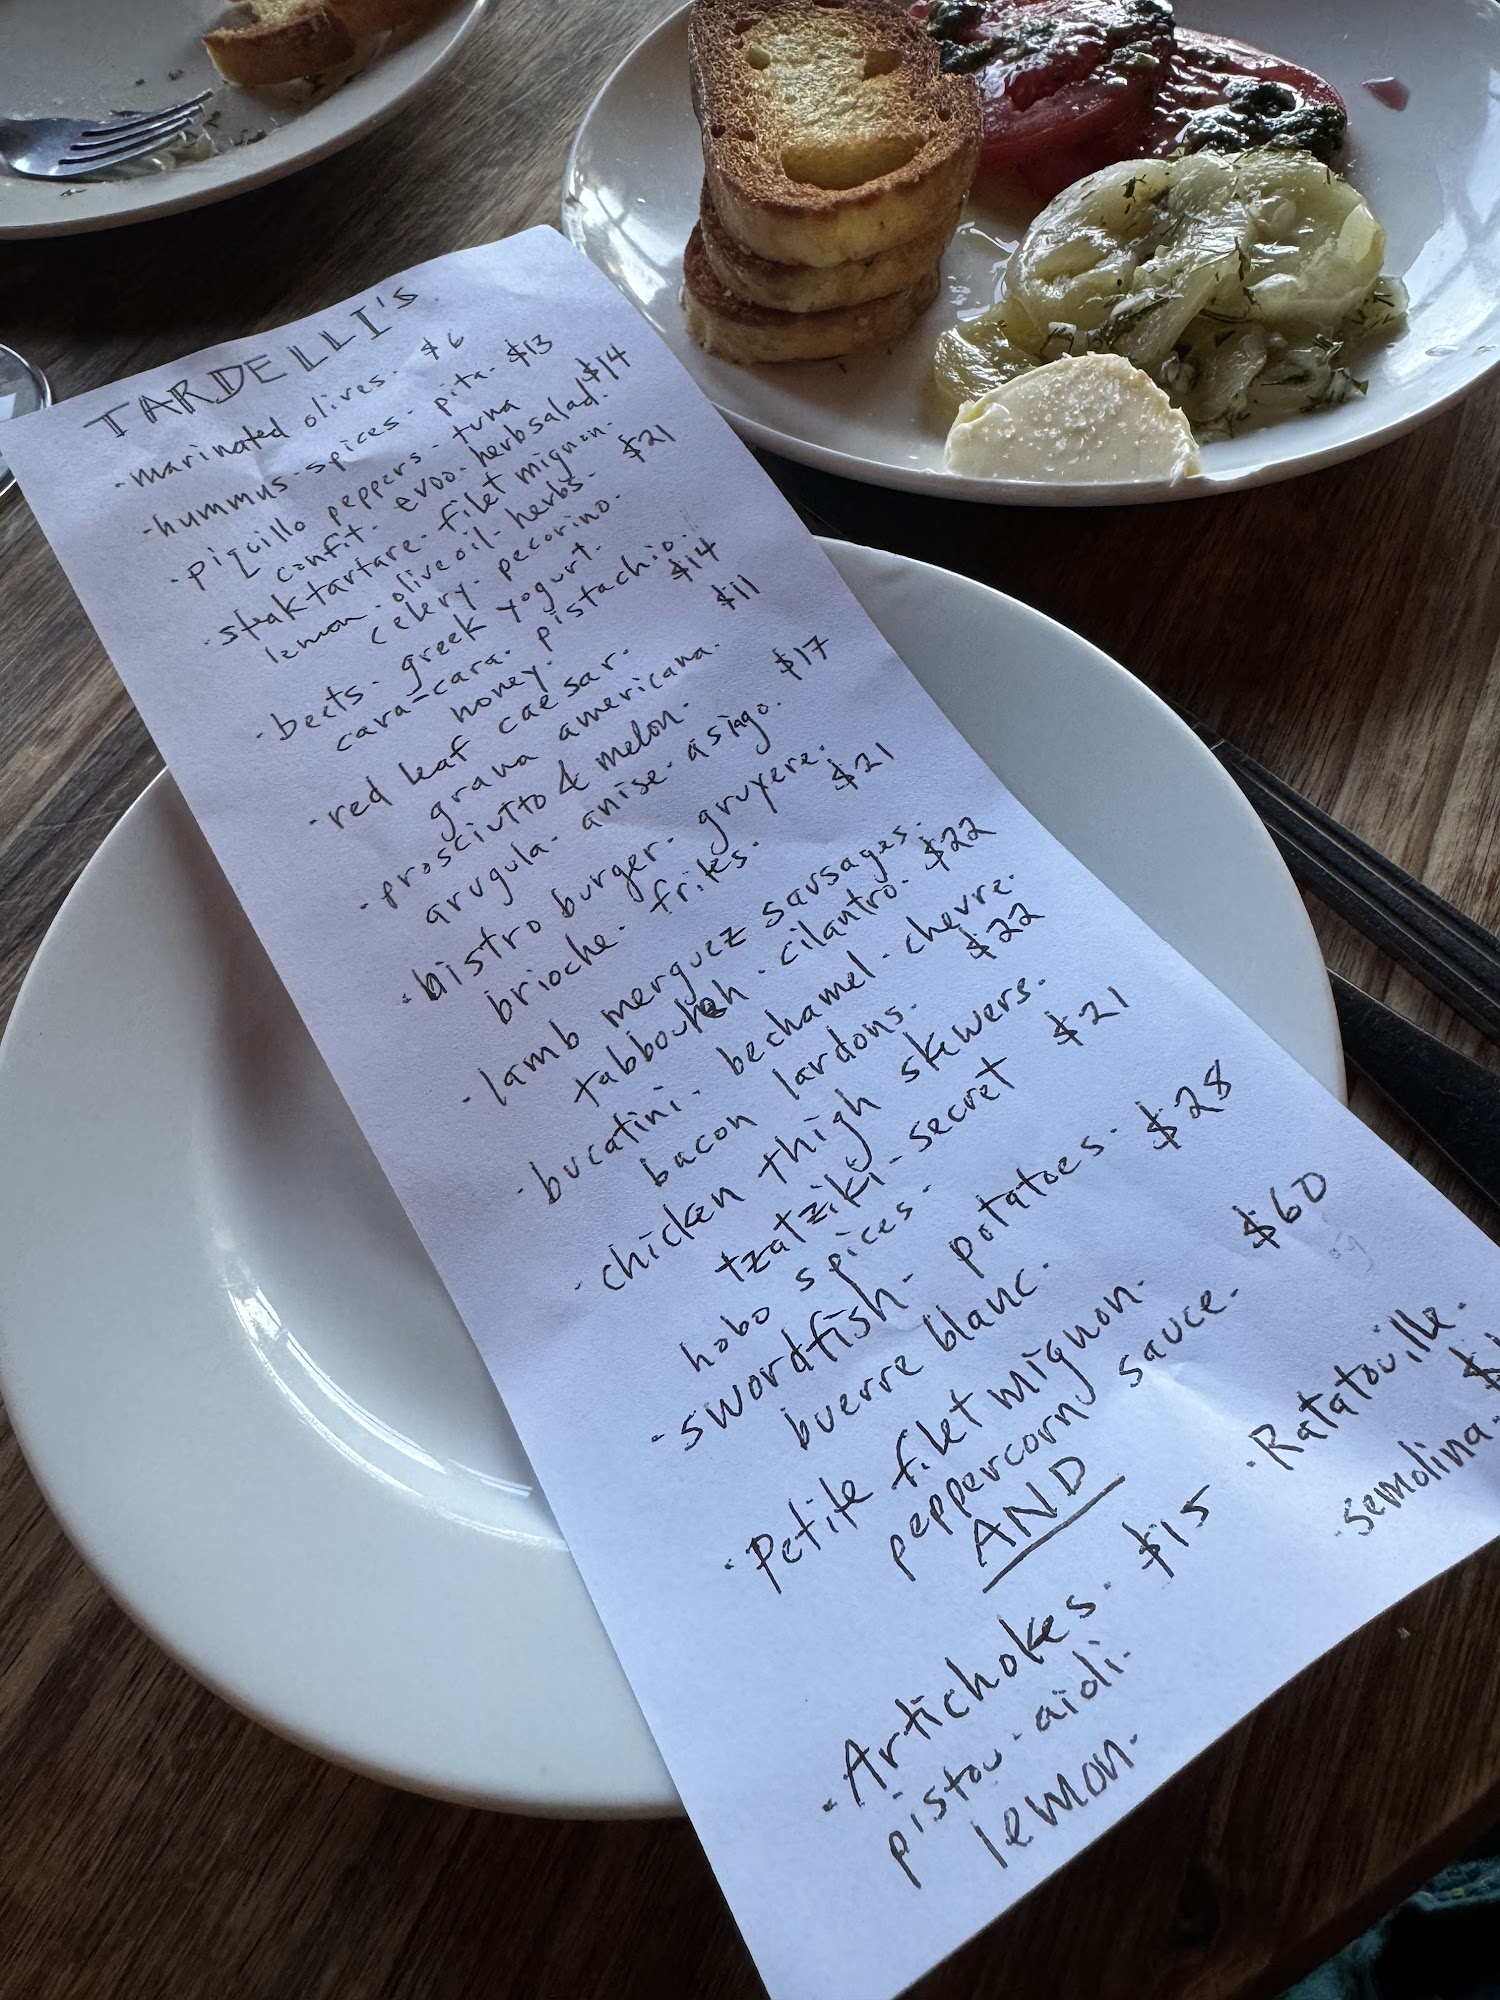 TARDELLI'S
· marinated olives. $6
· hummus · spices · pita · $13
· piquillo peppers · tuna
confit · evoo · herb salad. $14
· steak tartare · filet mignon.
lemon · olive oil · herbs · $21
celery · pecorino.
· beets · greek yogurt.
cara-cara · pistachio. $14
honey.
· red leaf caesar. $11
grana americana.
· prosciutto & melon. $17
arugula · anise · asiago.
· bistro burger · gruyere.
brioche · frites. $21
· lamb merguez sausages.
tabbouleh · cilantro. $22
· bucatini · bechamel · chevre.
bacon lardons. $22
· chicken thigh skewers.
tzatziki - secret $21
hobo spices.
· swordfish · potatoes. $28
buerre blanc.
· Petite filet mignon. $60
peppercorny sauce.
AND
· Artichokes. $15
pistou · aioli.
lemon.
· Ratatouille.
· semolina. $